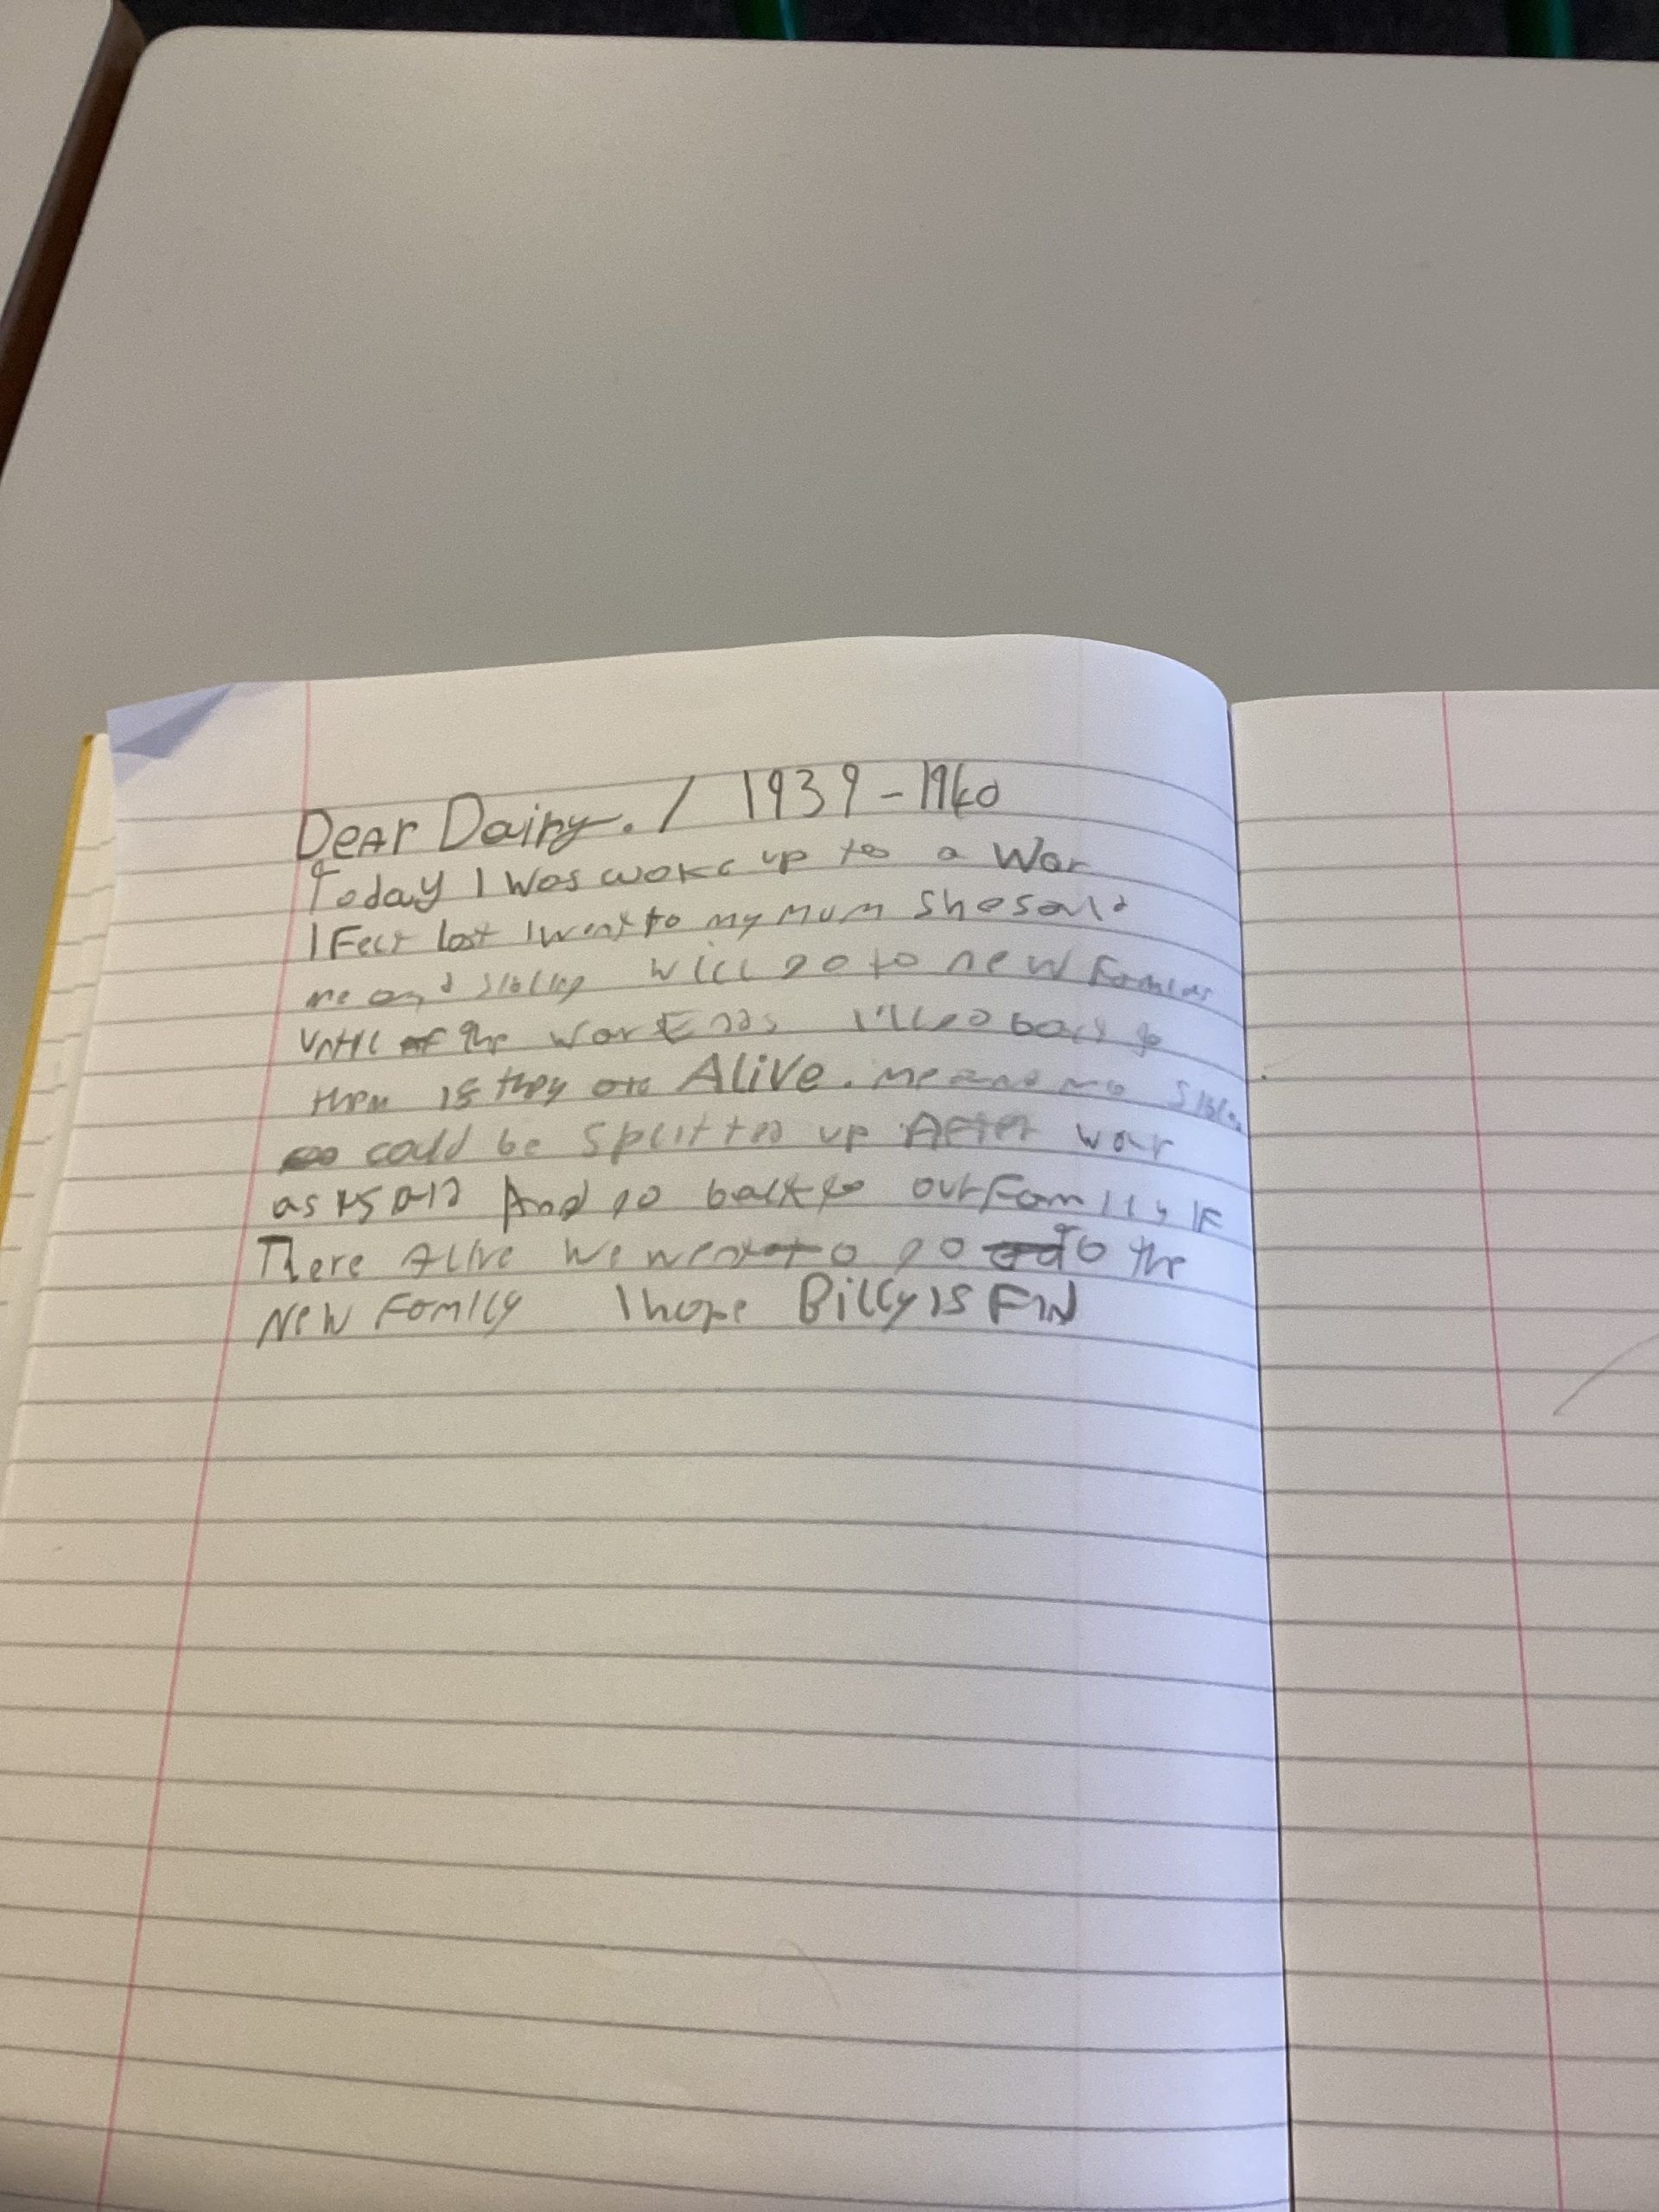 Dear Dairy. / 1939-1940
Today I was woke up to a War
I Felt lost I went to my MUM She said
me and sibling will go to new Families
until the war Ends I'll go back to
them if they are Alive. me and my
could be splitted up AFter war
as I said And go back to our Family IF
There Alive We went to go To the
New Family I hope Billy IS FIN